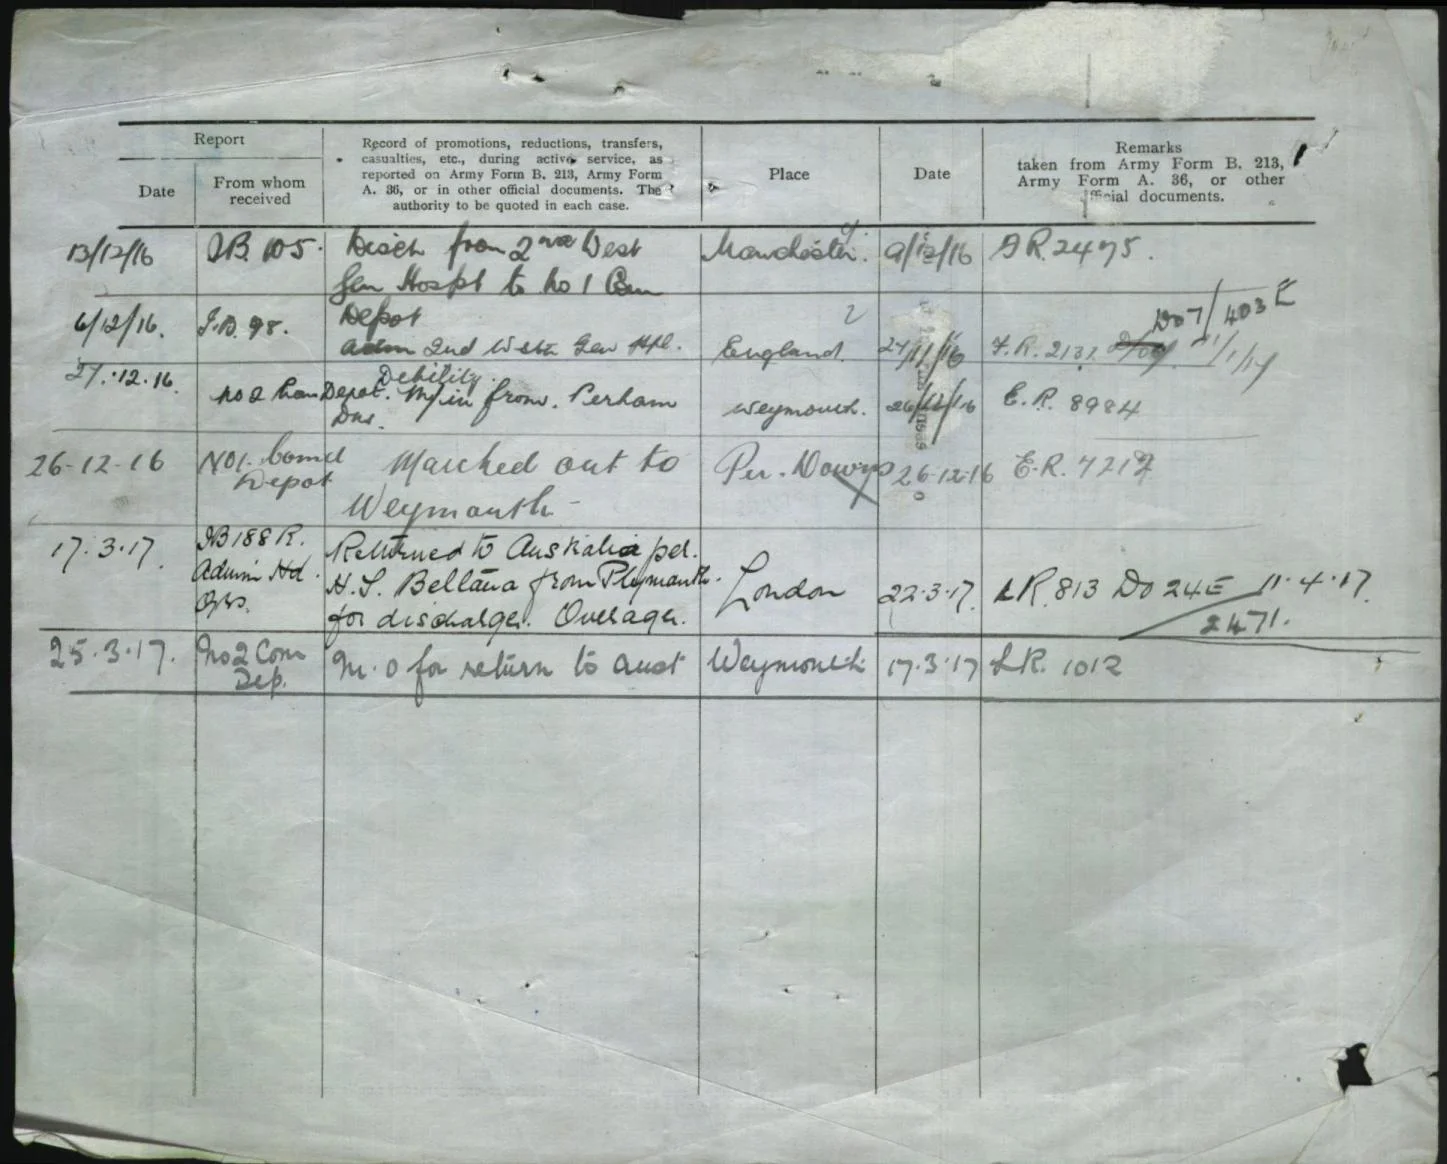 Report
Date
From whom
received
Record of promotions, reductions, transfers,
casualties, etc., during active service, as
reported on Army Form B. 213, Army Form
A. 36, or in other official documents. The
authority to be quoted in each case.
Place
Date
Remarks
taken from Army Form B. 213,
Army Form A. 36, or other
official documents.
13/12/16 105. Disch from 2nd West Manchester. 9/12/16 2475.
Gen Hospt to No 1 Com
Depot
6/12/16. 98. adm 2nd West Gen Hpl. England. 27/11/16 2131 Do7/403E
1/1/17
Debility.
27.12.16. No 2 Com Depot. M/in from. Perham Weymouth. 26/12/16 E.R. 8984
Dns.
26-12-16 No1. Comd Marched out to Per. Downs 26-12-16 E.R. 7217
Depot Weymouth -
17.3.17. IB188 R. Returned to Australia per.
Admin Hd. H.S. Beltana from Plymouth. London 22.3.17. LR.813 DO 24E 11.4.17.
Qrs. for discharge. Overage. 2471.
25.3.17. No2 Com M.O for return to Aust Weymouth 17.3.17 LR. 1012
Dep.